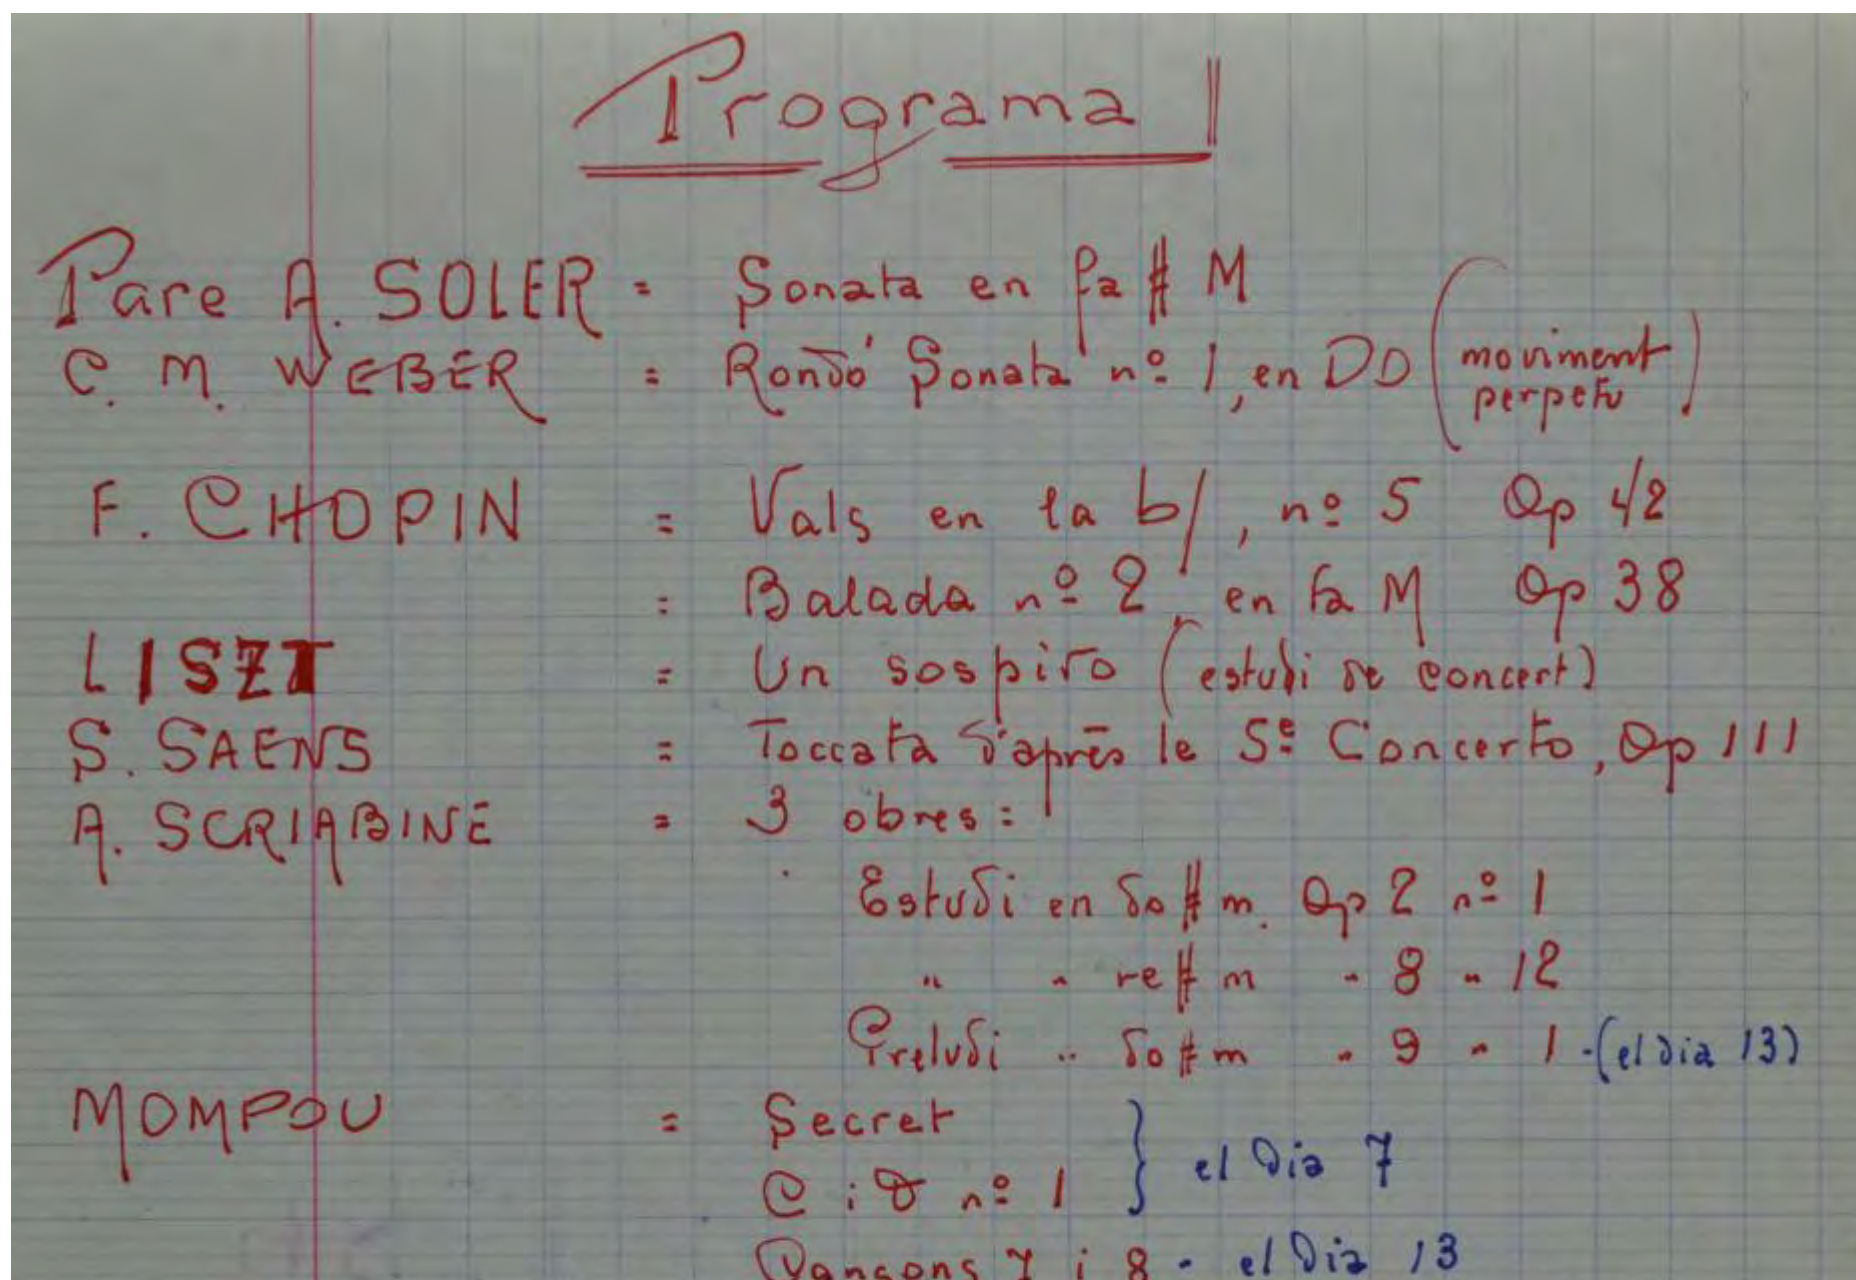 Programa I
Pare A. SOLER = Sonata en fa # M
C. M. WEBER = Rondó Sonata nº 1, en DO (moviment perpetu)
F. CHOPIN = Vals en la b, nº 5 Op 42
= Balada nº 2, en fa M Op 38
LISZT = Un sospiro (estudi de concert)
S. SAENS = Toccata d'après le 5º Concerto, Op 111
A. SCRIABINE = 3 obres:
Estudi en do # m. Op 2 nº 1
" " re # m " 8 " 12
Preludi " do # m " 9 " 1 - (el dia 13)
MOMPOU = Secret
C i D nº 1 } el dia 7
Cançons 7 i 8 - el dia 13